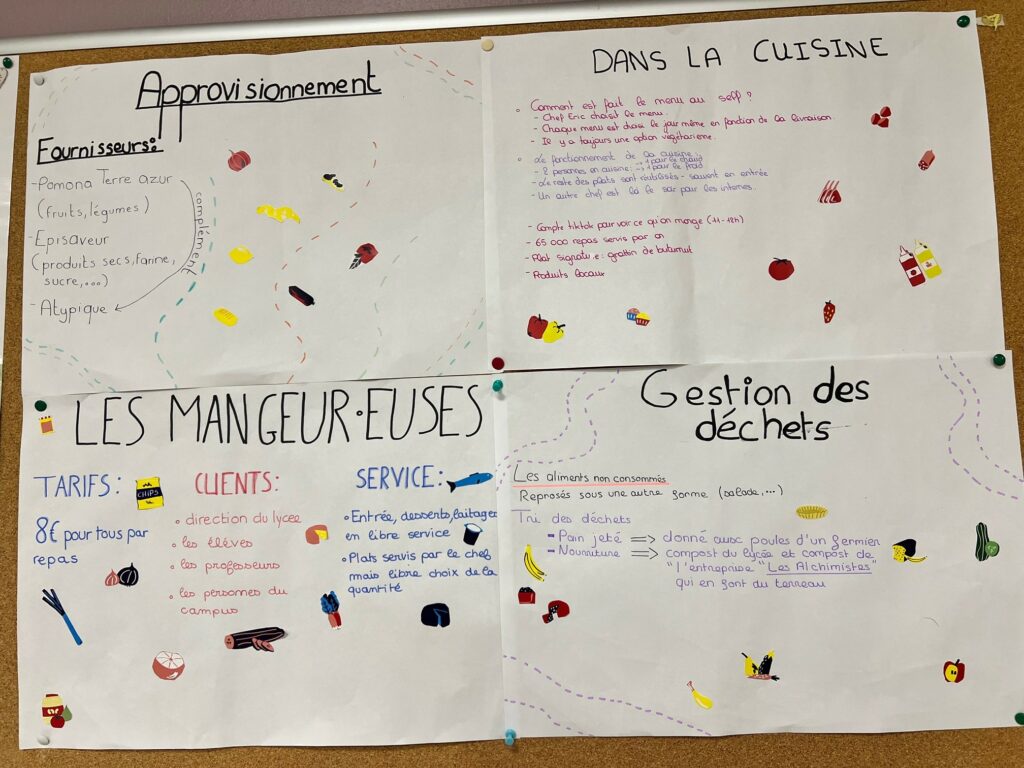 Approvisionnement
Fournisseurs:
-Pomona Terre azur
(fruits, légumes)
-Episaveur
(produits secs, farine,
sucre,...)
-Atypique
complément
DANS LA CUISINE
Comment est fait le menu au self?
- Chef Eric choisit le menu.
- Chaque menu est choisi le jour même en fonction de la livraison.
- Il y a toujours une option végétarienne.
Le fonctionnement de la cuisine:
- 2 personnes en cuisine: → 1 pour le chaud
→ 1 pour le froid
- Le reste des plats sont réutilisés - souvent en entrée
- Un autre chef est là le soir pour les internes.
- Compte tiktok pour voir ce qu'on mange (11-12h)
- 65 000 repas servis par an
- Plat signature: gratin de buturnut
- Produits locaux
LES MANGEUR·EUSES
TARIFS:
8€ pour tous par
repas
CHIPS
CLIENTS:
• direction du lycée
• les élèves
• les professeurs
• les personnes du
campus
SERVICE:
• Entrée, desserts, laitages
en libre service
• Plats servis par le chef
mais libre choix de la
quantité
Gestion des
déchets
Les aliments non consommés
Reprosés sous une autre forme (salade,...)
Tri des déchets
- Pain jeté => donné aux poules d'un fermier
- Nourriture => compost du lycée et compost de
"l'entreprise "Les Alchimistes"
qui en font du terreau